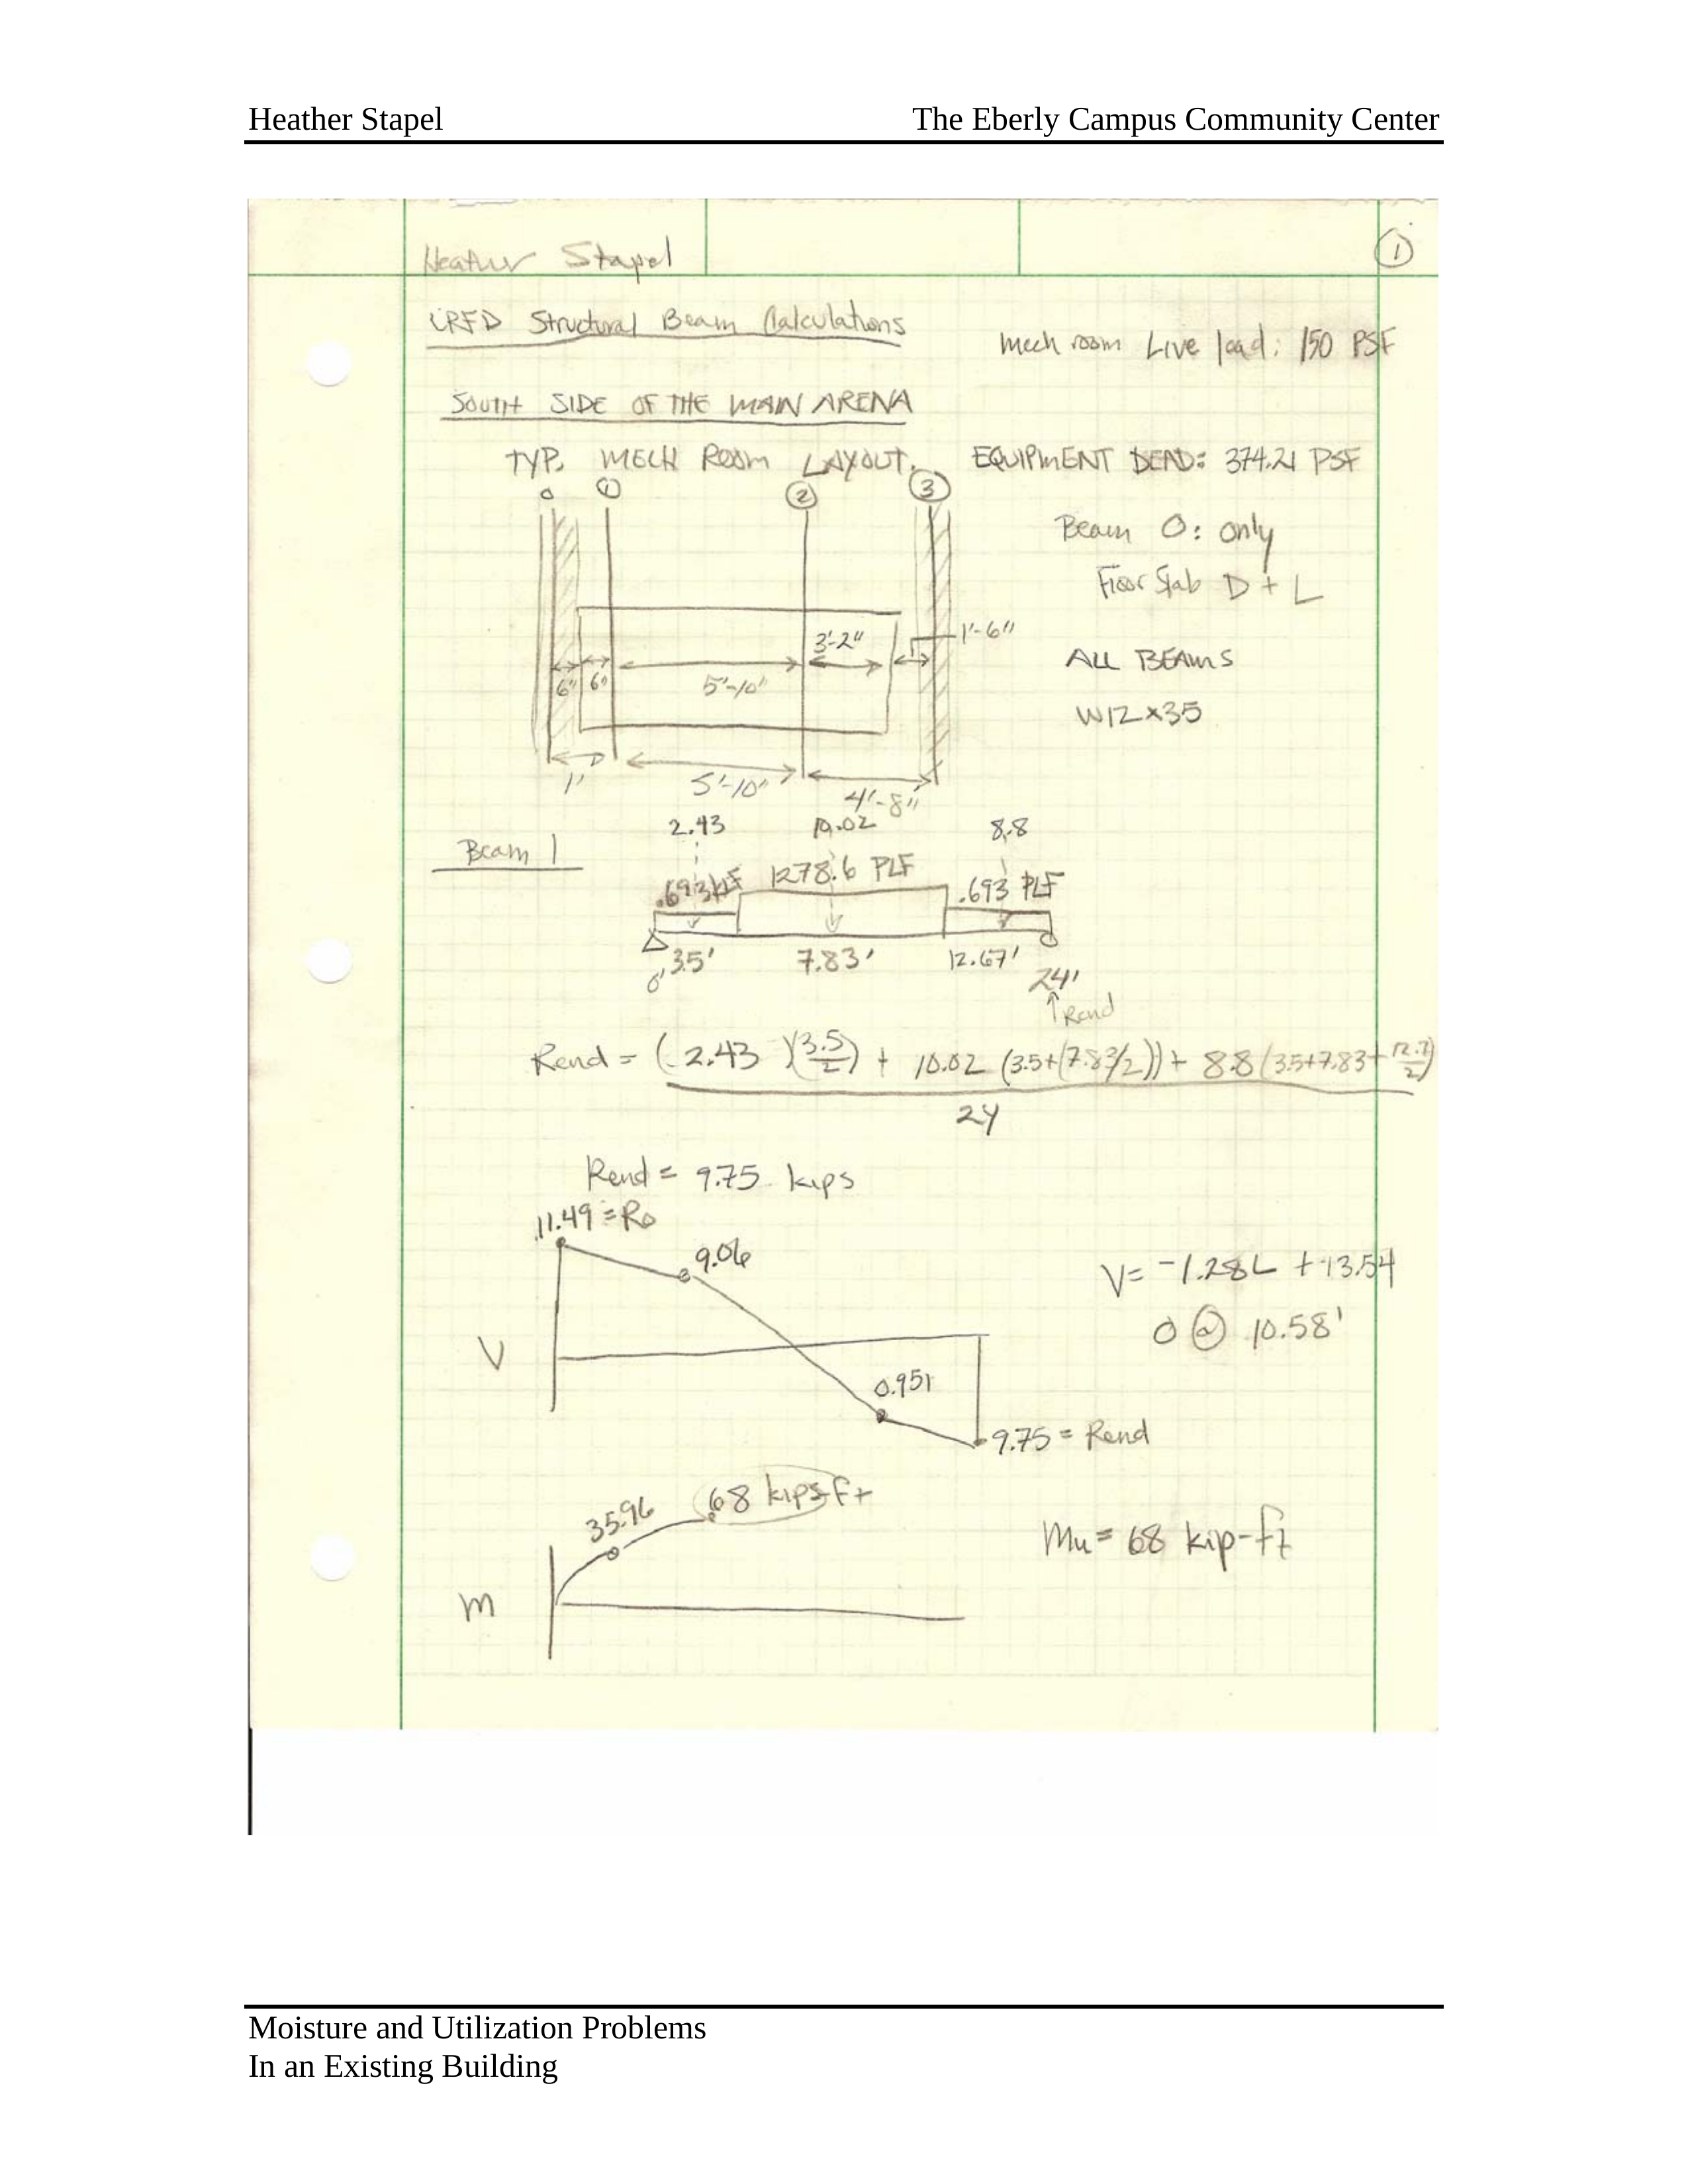 Heather Stapel The Eberly Campus Community Center
Heather Stapel 1
LRFD Structural Beam Calculations
Mech room Live load: 150 PSF
SOUTH SIDE OF THE MAIN ARENA
TYP. MECH ROOM LAYOUT. EQUIPMENT DEAD: 374.21 PSF
0 1 2 3
Beam 0: only
Floor Slab D + L
3'-2" 1'-6"
ALL BEAMS
6" 6" 5'-10"
W12x35
1' 5'-10" 4'-8"
2.43 10.02 8.8
Beam 1
.693 KLF 1278.6 PLF .693 PLF
3.5' 7.83' 12.67'
0' 24'
↑ Rend
Rend = (2.43)(3.5/2) + 10.02 (3.5+(7.83/2)) + 8.8 (3.5+7.83+12.7/2)
24
Rend = 9.75 kips
11.49 = Ro
9.06
V = -1.28L + 13.54
0 @ 10.58'
V
0.951
9.75 = Rend
68 kips-Ft
35.96
Mu = 68 kip-ft
M
Moisture and Utilization Problems
In an Existing Building